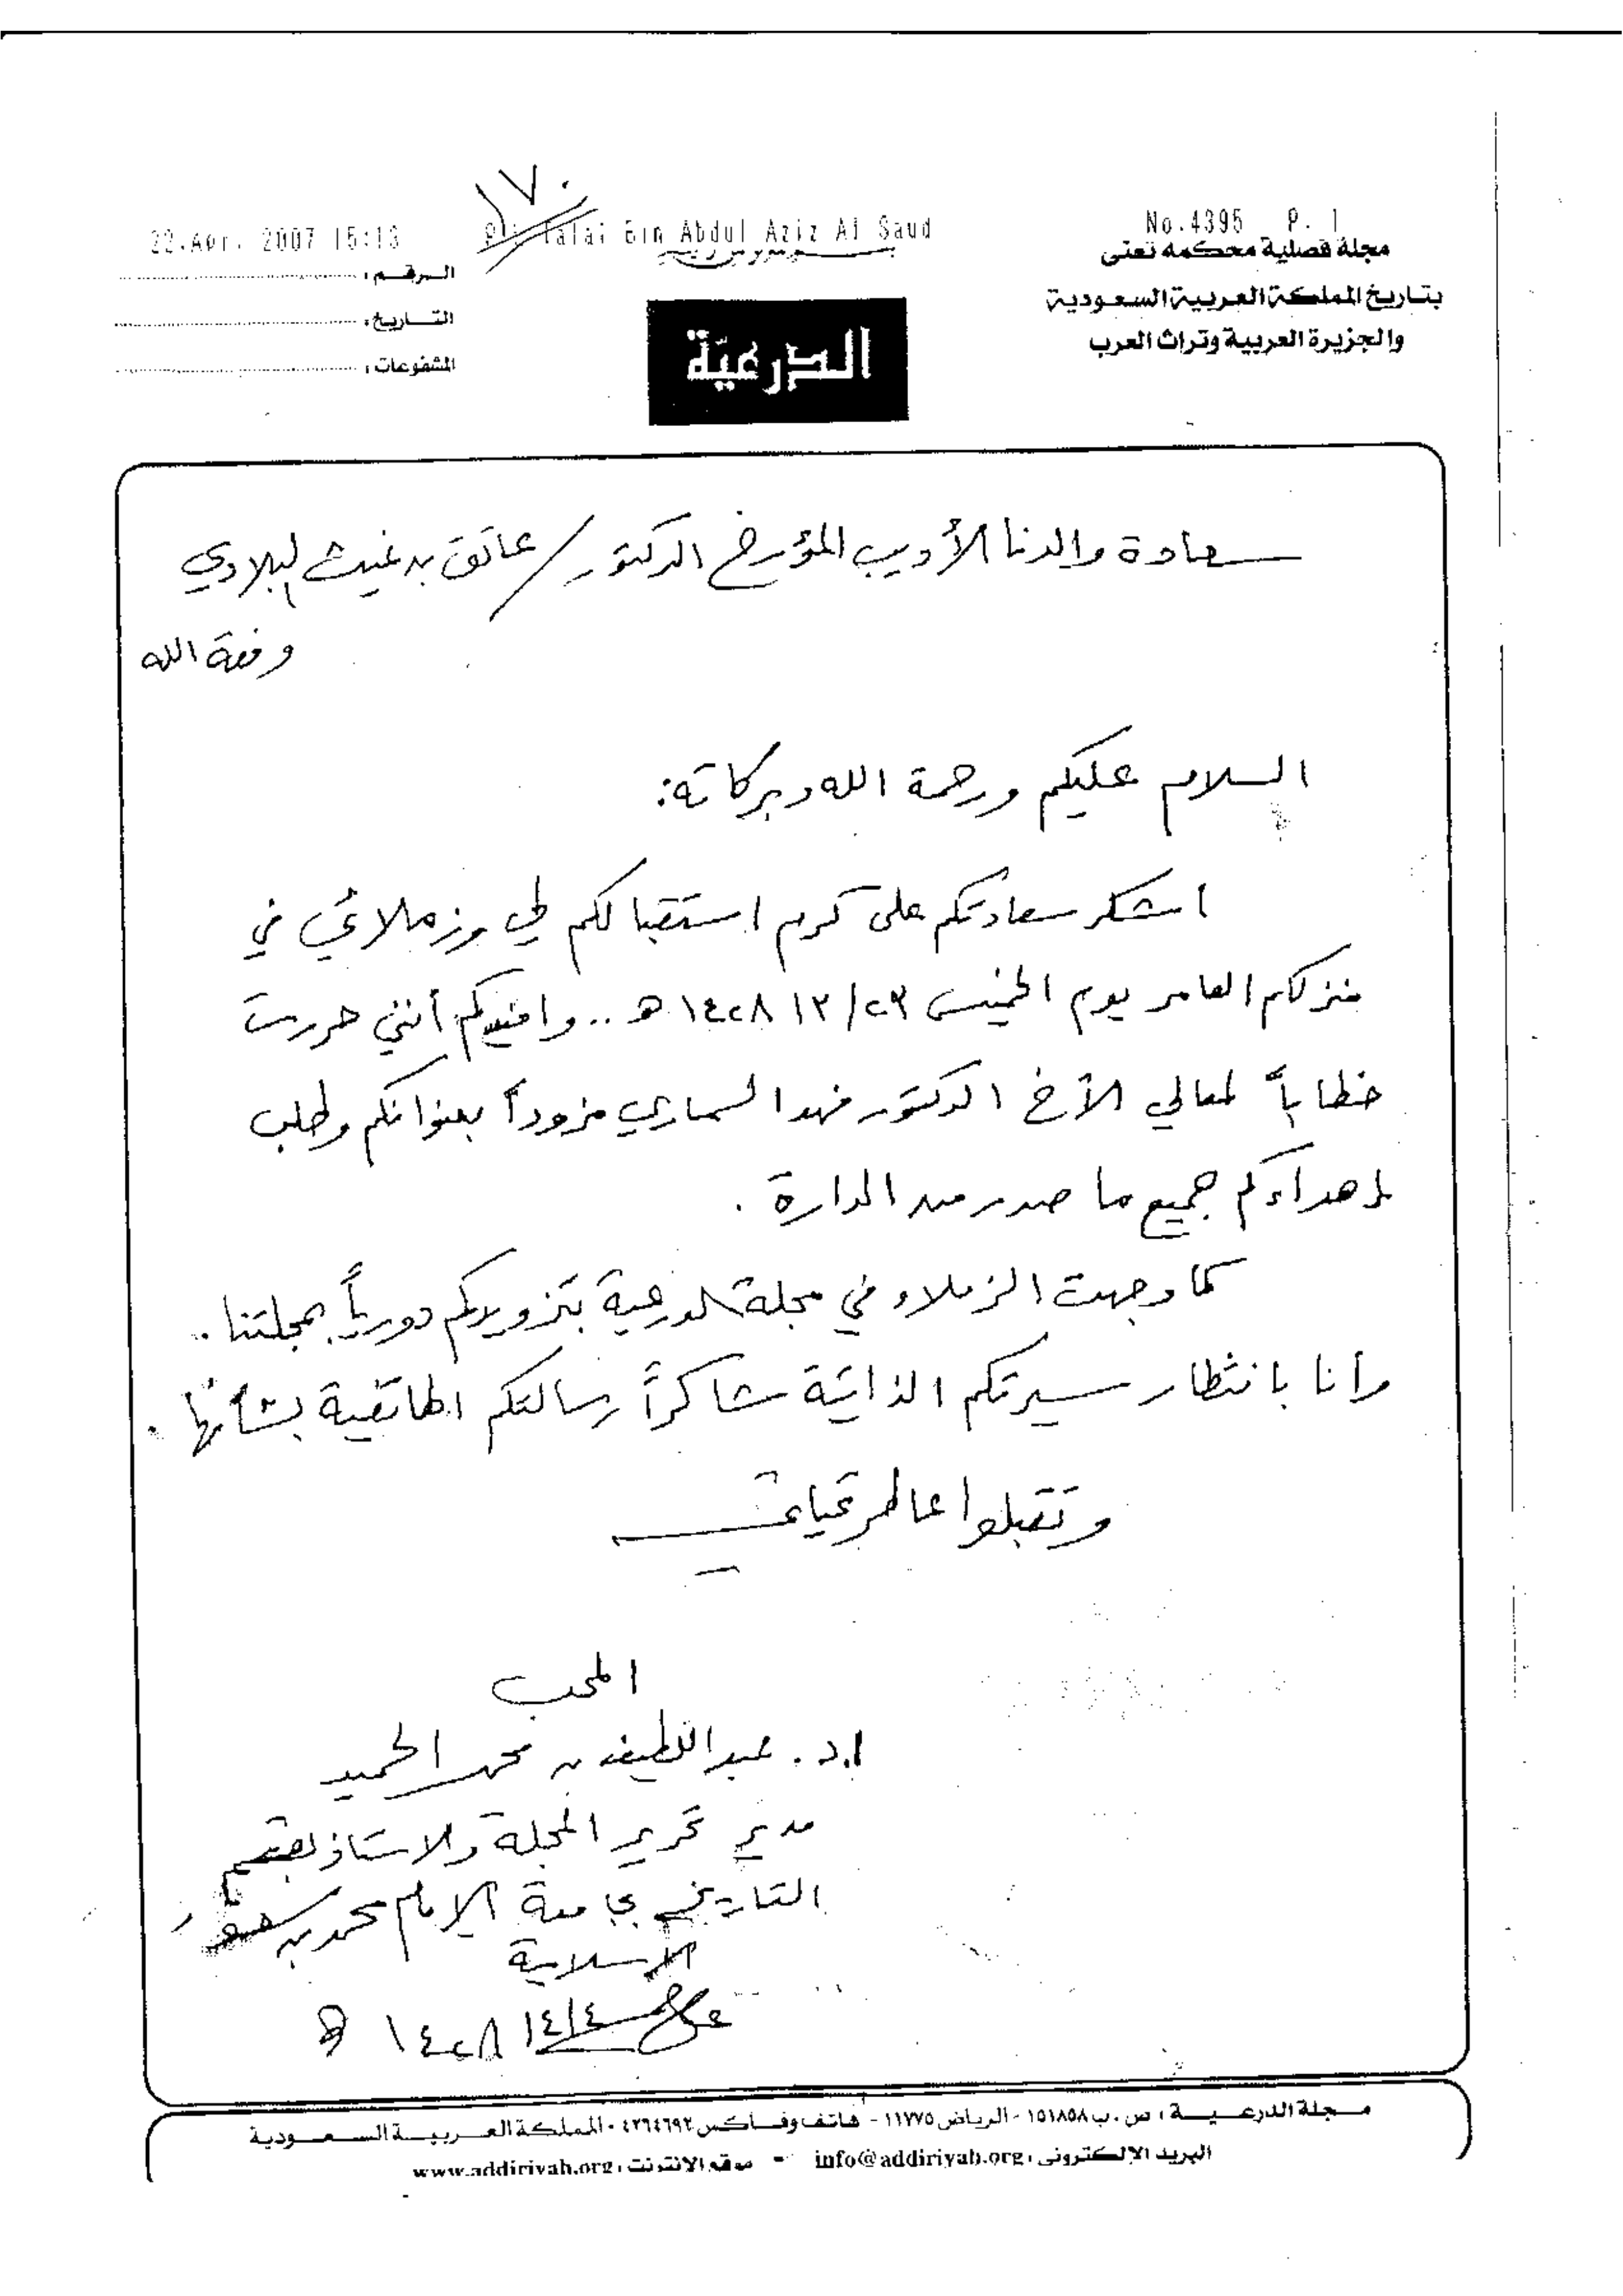 ١٧٠
22.Apr. 2007 15:13 Talal Bin Abdul Aziz Al Saud No.4395 P. 1
مجلة فصلية محكمة تعنى
بتاريخ المملكة العربية السعودية
والجزيرة العربية وتراث العرب
الدرعية
الرقم :
التاريخ :
المشفوعات :
سعادة والدنا الأديب المؤرخ الدكتور / عاتق بن غيث البلادي
وفقه الله
السلام عليكم ورحمة الله وبركاته:
أشكر سعادتكم على كرم استقبالكم لي وزملائي في
منزلكم العامر يوم الخميس ١٤٢٨ هـ .. وافيدكم أنني حررت
خطاباً لمعالي الأخ الدكتور فهد السماري مزوداً بعنوانكم وطلب
إهداءكم جميع ما صدر من الدارة .
كما وجهت الزملاء في مجلة الدرعية بتزويدكم دورياً بمجلتنا ..
وأنا بانتظار سيرتكم الذاتية شاكراً رسالتكم الهاتفية بشأنها .
وتقبلوا عاطر تحياتي
المحب
ا.د. عبداللطيف بن محمد الحميد
مدير تحرير المجلة والاستاذ بقسم
التاريخ بجامعة الإمام محمد بن سعود
الاسلامية
٤/٤/ ١٤٢٨ هـ
مجلة الدرعية : ص . ب ١٥١٨٥٨ - الرياض ١١٧٧٥ - هاتف وفاكس ٤٢٦٤٦٩٢ - المملكة العربية السعودية
البريد الالكتروني : info@addiriyah.org - موقع الانترنت : www.addiriyah.org